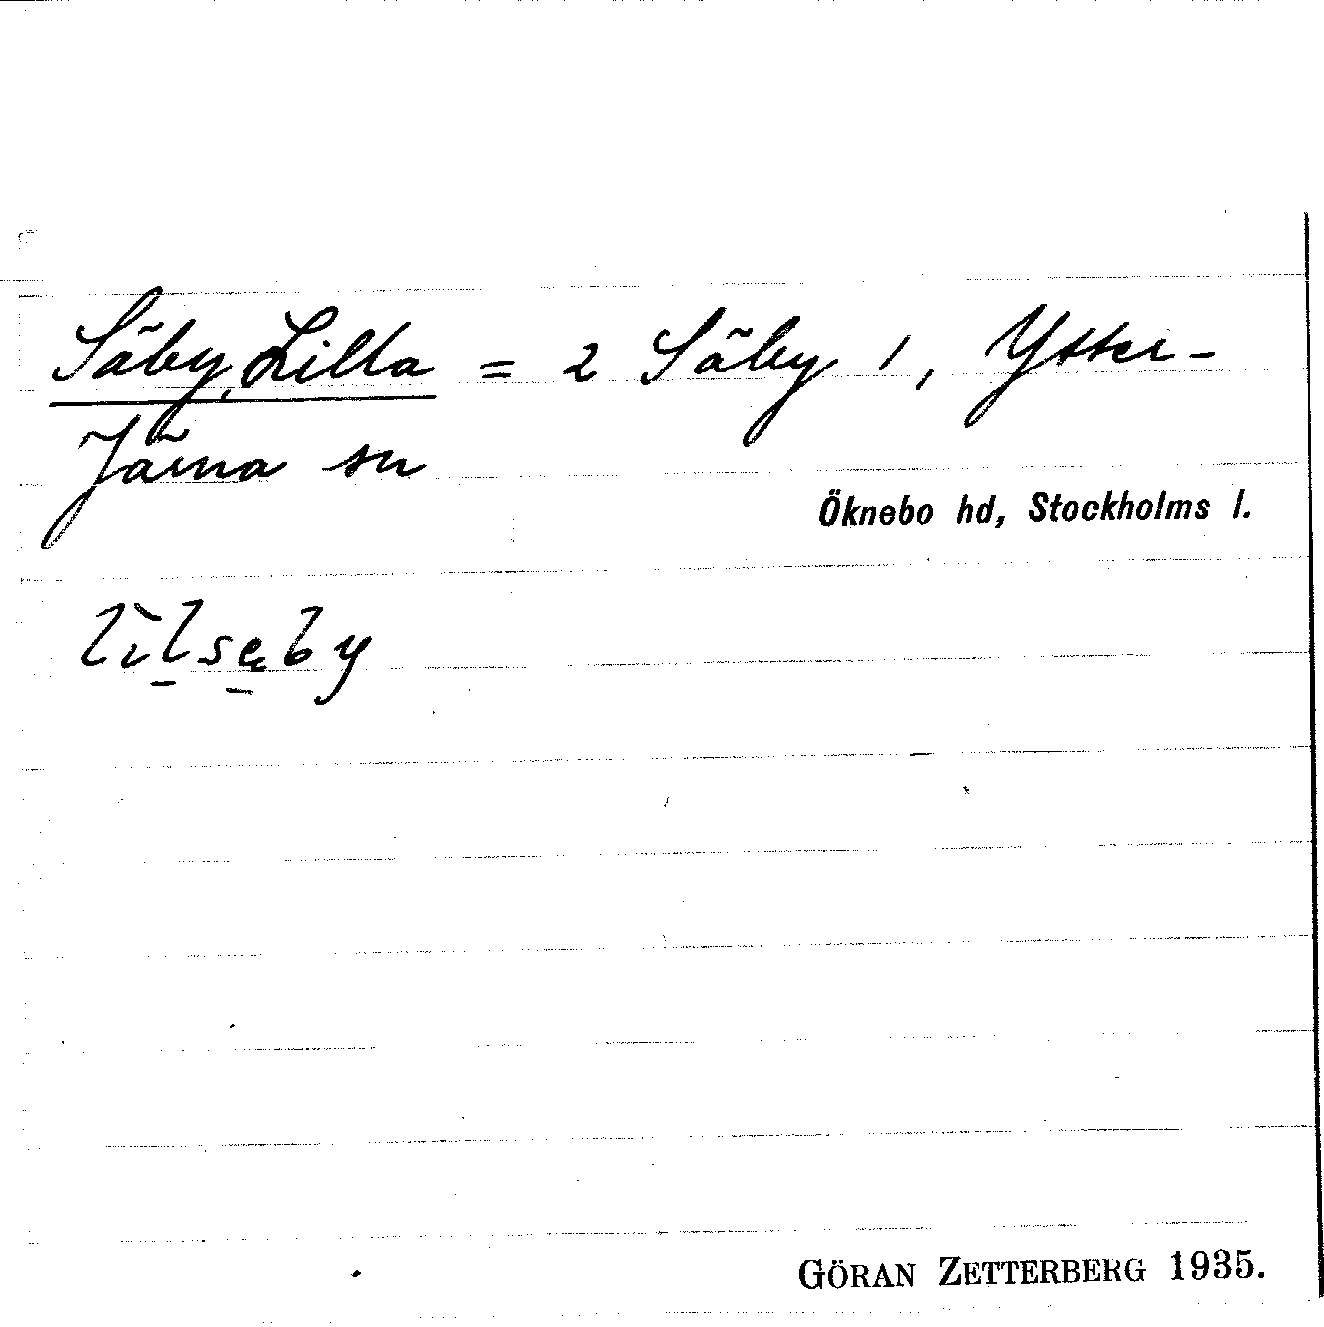 Säby, Lilla = 2 Säby 1, Ytter-
Järna sn
Öknebo hd, Stockholms l.
lìlsęby
GÖRAN ZETTERBERG 1935.